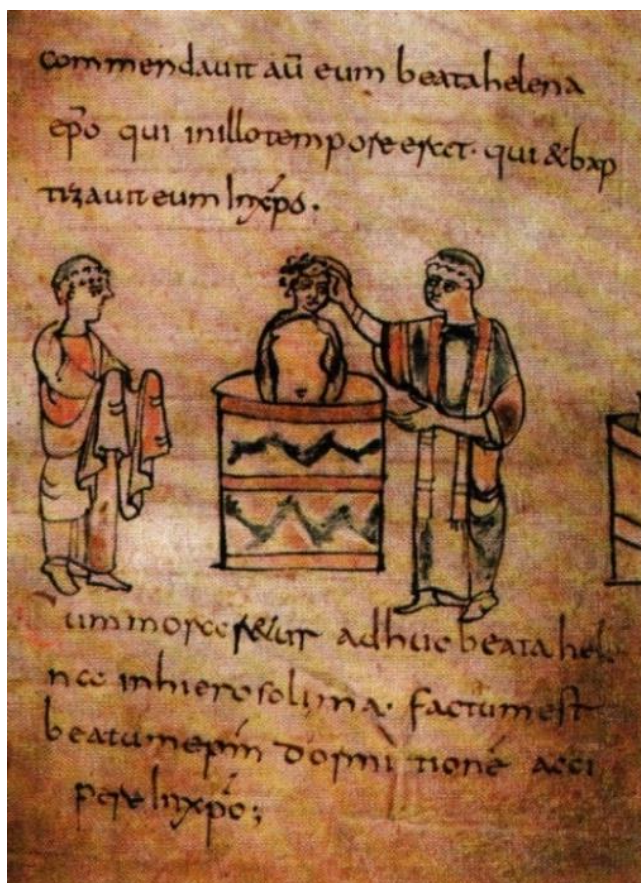 commendauit aū eum beata helena
ep̄o qui in illo tempore erat· qui & bap
tizauit eum In xp̄o·
Cum morar&ur adhuc beata hele
na in hierosolima· factum est
beatum ep̄m dormitionē acci
pere In xp̄o;